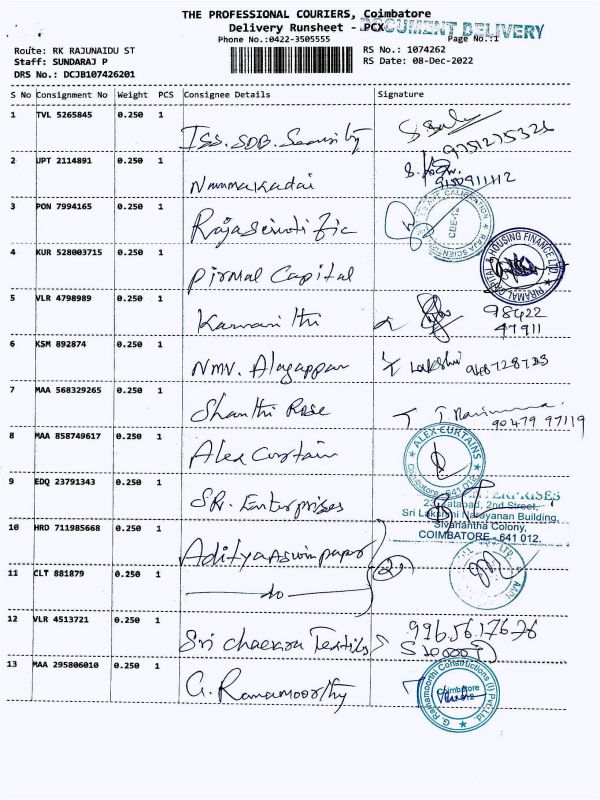 THE PROFESSIONAL COURIERS, Coimbatore
Delivery Runsheet - PCX
DOCUMENT DELIVERY
Phone No.:0422-3505555
Page No.:1
Route: RK RAJUNAIDU ST
RS No.: 1074262
Staff: SUNDARAJ P
RS Date: 08-Dec-2022
DRS No.: DCJB107426201
S No Consignment No Weight PCS Consignee Details Signature
1 TVL 5265845 0.250 1
ISS. SDB. Security
9751275326
2 UPT 2114891 0.250 1
Nammakadai
9150911112
3 PON 7994165 0.250 1
4 KUR 528003715 0.250 1
Pirmal Capital
PIRAMAL CAPITAL & HOUSING FINANCE LTD.
5 VLR 4798989 0.250 1
98422
47911
6 KSM 892874 0.250 1
NMV. Alagappan
Lakshmi
7 MAA 568329265 0.250 1
Shanthi Rose
90479 97119
8 MAA 858749617 0.250 1
Alex Curtain
ALEX CURTAINS
Coimbatore - 641 012
9 EDQ 23791343 0.250 1
SR. Enterprises
ENTERPRISES
2nd Street,
Sri Lakshmi Narayanan Building,
Sivanantha Colony,
COIMBATORE - 641 012.
10 HRD 711985668 0.250 1
Aditya Aswin paper
11 CLT 881879 0.250 1
do
12 VLR 4513721 0.250 1
Sri Chackra Textiles
9965617676
13 MAA 295806010 0.250 1
G. Ramamoorthy
G. Ramamoorthi Constructions (I) Pvt.Ltd.
Coimbatore